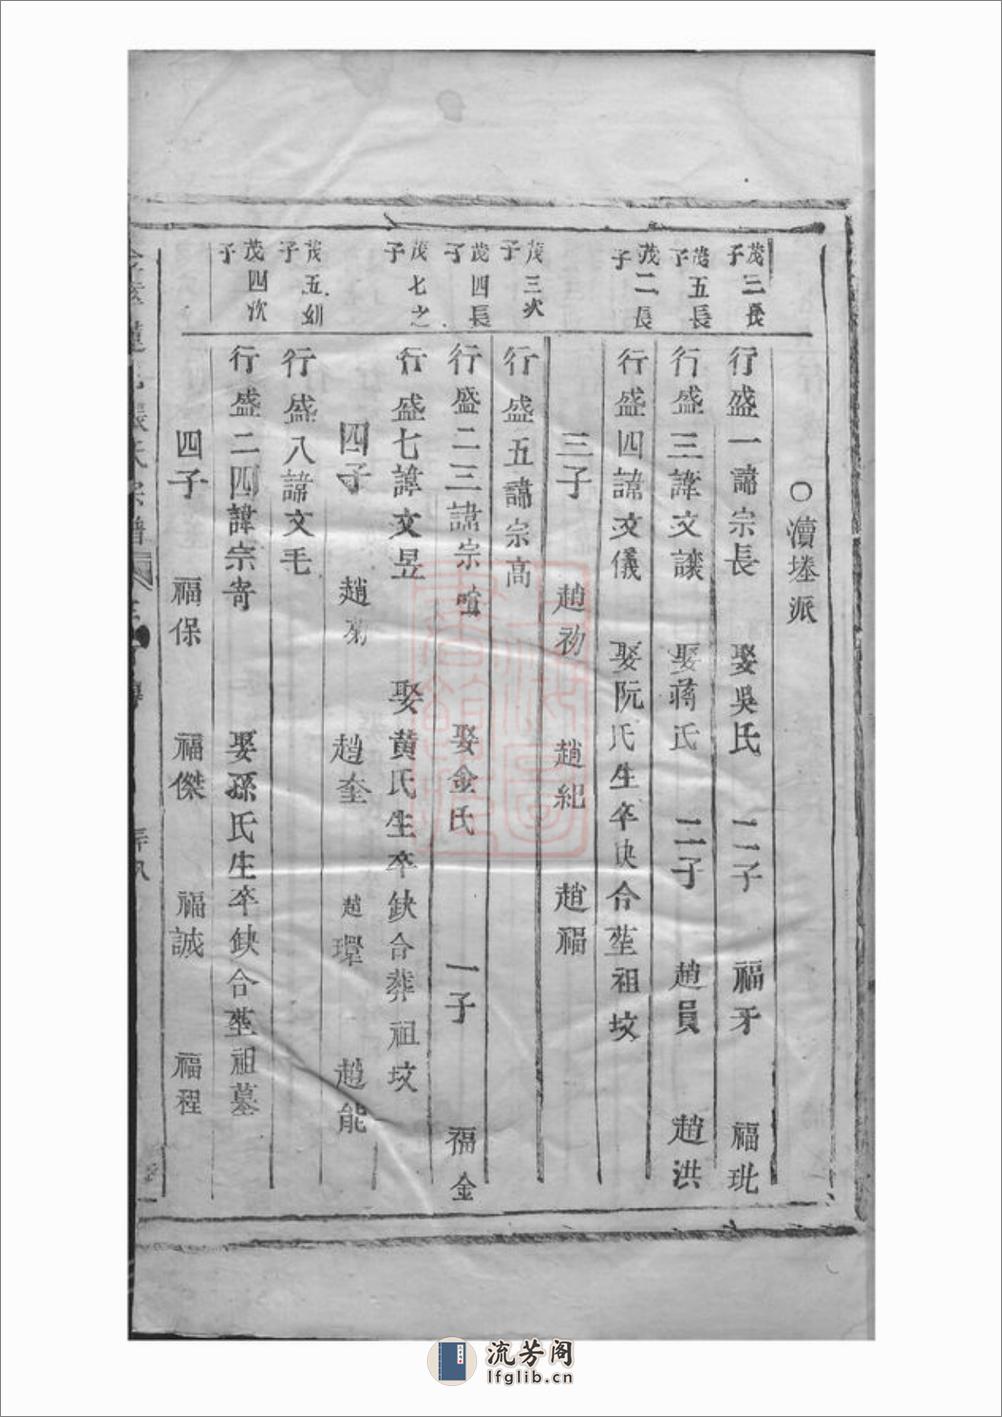 ○瀆墶派
茂三長子
行盛一諱宗長 娶吳氏 二子 福牙 福玭
茂五長子
行盛三諱文讓 娶蔣氏 二子 趙員 趙洪
茂二長子
行盛四諱文儀 娶阮氏生卒缺合塟祖坟
三子 趙初 趙紀 趙福
茂三次子
行盛五諱宗高
茂四長子
行盛二三諱宗 娶金氏 一子 福金
茂七之子
行盛七諱文昱 娶黄氏生卒缺合葬祖坟
四子 趙 趙奎 趙環 趙能
茂五幼子
行盛八諱文毛
茂四次子
行盛二四諱宗寄 娶孫氏生卒缺合塟祖墓
四子 福保 福傑 福誠 福程
張氏宗譜
流芳阁
lfglib.cn